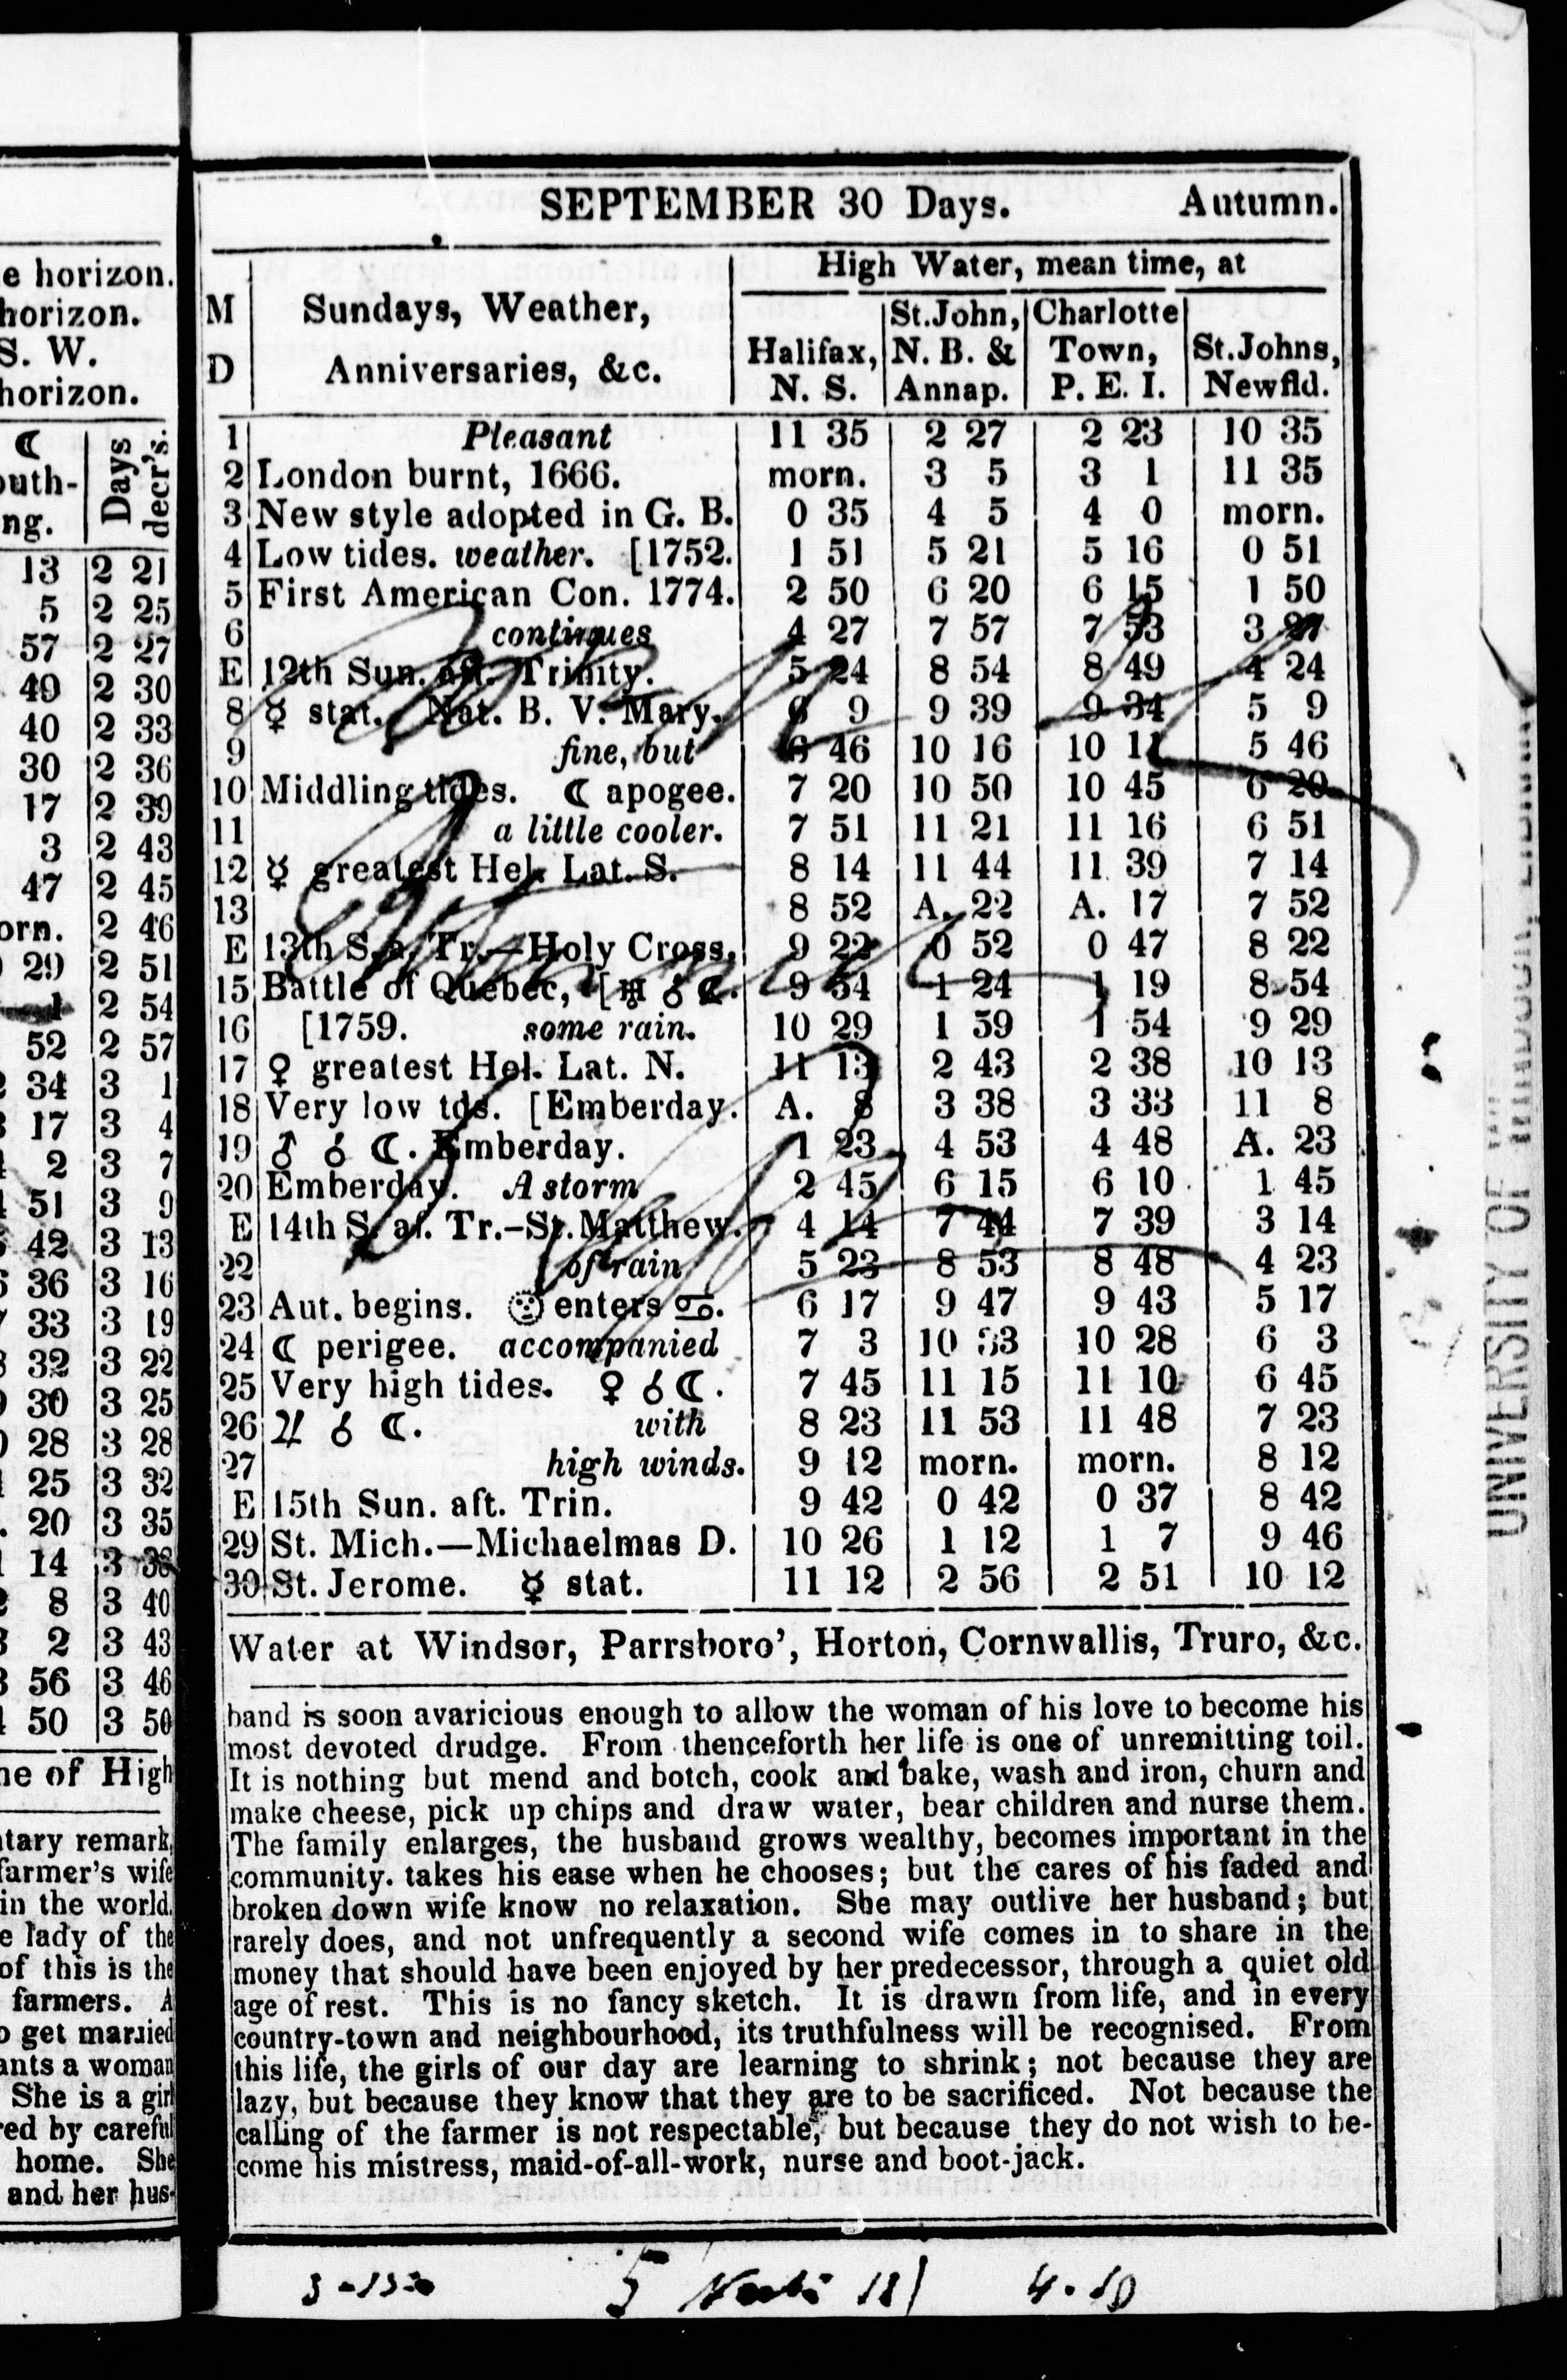 e horizon.
horizon.
S. W.
horizon.
☾ Days
outh- decr's.
ng.
13 2 21
5 2 25
57 2 27
49 2 30
40 2 33
30 2 36
17 2 39
3 2 43
47 2 45
orn. 2 46
29 2 51
1 2 54
52 2 57
34 3 1
17 3 4
2 3 7
51 3 9
42 3 13
36 3 16
33 3 19
32 3 22
30 3 25
28 3 28
25 3 32
20 3 35
14 3 38
8 3 40
2 3 43
56 3 46
50 3 50
ne of High
tary remark,
farmer's wife
in the world.
e lady of the
of this is the
farmers. A
o get married
ants a woman
She is a girl
red by careful
home. She
and her hus-
SEPTEMBER 30 Days. Autumn.
High Water, mean time, at
M Sundays, Weather, St.John, Charlotte
D Anniversaries, &c. Halifax, N. B. & Town, St.Johns,
N. S. Annap. P. E. I. Newfld.
1 Pleasant 11 35 2 27 2 23 10 35
2 London burnt, 1666. morn. 3 5 3 1 11 35
3 New style adopted in G. B. 0 35 4 5 4 0 morn.
4 Low tides. weather. [1752. 1 51 5 21 5 16 0 51
5 First American Con. 1774. 2 50 6 20 6 15 1 50
6 continues 4 27 7 57 7 53 3 27
E 12th Sun. aft. Trinity. 5 24 8 54 8 49 4 24
8 ☿ stat. Nat. B. V. Mary. 6 9 9 39 9 34 5 9
9 fine, but 6 46 10 16 10 11 5 46
10 Middling tides. ☾ apogee. 7 20 10 50 10 45 6 20
11 a little cooler. 7 51 11 21 11 16 6 51
12 ☿ greatest Hel. Lat. S. 8 14 11 44 11 39 7 14
13 8 52 A. 22 A. 17 7 52
E 13th S. a. Tr.—Holy Cross. 9 22 0 52 0 47 8 22
15 Battle of Quebec, [♅ ☌ ☾. 9 54 1 24 1 19 8 54
16 [1759. some rain. 10 29 1 59 1 54 9 29
17 ♀ greatest Hel. Lat. N. 11 13 2 43 2 38 10 13
18 Very low tds. [Emberday. A. 8 3 38 3 33 11 8
19 ♂ ☌ ☾. Emberday. 1 23 4 53 4 48 A. 23
20 Emberday. A storm 2 45 6 15 6 10 1 45
E 14th S. af. Tr.-St. Matthew. 4 14 7 44 7 39 3 14
22 of rain 5 23 8 53 8 48 4 23
23 Aut. begins. ☉ enters ♎. 6 17 9 47 9 43 5 17
24 ☾ perigee. accompanied 7 3 10 33 10 28 6 3
25 Very high tides. ♀ ☌ ☾. 7 45 11 15 11 10 6 45
26 ♃ ☌ ☾. with 8 23 11 53 11 48 7 23
27 high winds. 9 12 morn. morn. 8 12
E 15th Sun. aft. Trin. 9 42 0 42 0 37 8 42
29 St. Mich.—Michaelmas D. 10 26 1 12 1 7 9 46
30 St. Jerome. ☿ stat. 11 12 2 56 2 51 10 12
Water at Windsor, Parrsboro', Horton, Cornwallis, Truro, &c.
band is soon avaricious enough to allow the woman of his love to become his
most devoted drudge. From thenceforth her life is one of unremitting toil.
It is nothing but mend and botch, cook and bake, wash and iron, churn and
make cheese, pick up chips and draw water, bear children and nurse them.
The family enlarges, the husband grows wealthy, becomes important in the
community. takes his ease when he chooses; but the cares of his faded and
broken down wife know no relaxation. She may outlive her husband; but
rarely does, and not unfrequently a second wife comes in to share in the
money that should have been enjoyed by her predecessor, through a quiet old
age of rest. This is no fancy sketch. It is drawn from life, and in every
country-town and neighbourhood, its truthfulness will be recognised. From
this life, the girls of our day are learning to shrink; not because they are
lazy, but because they know that they are to be sacrificed. Not because the
calling of the farmer is not respectable, but because they do not wish to be-
come his mistress, maid-of-all-work, nurse and boot-jack.
UNIVERSITY OF WINDSOR LIBRARY